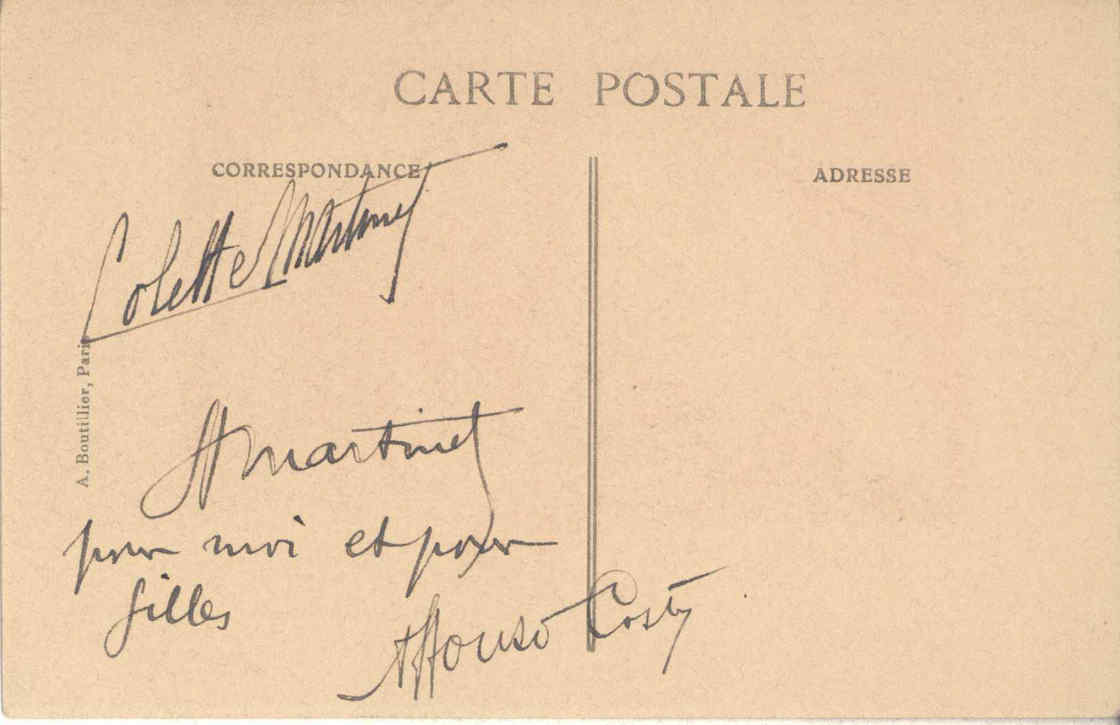 CARTE POSTALE
CORRESPONDANCE
ADRESSE
Colette Martinet
A. Boutillier, Paris
A Martinet
pour moi et pour
Gilles
Affonso Costa